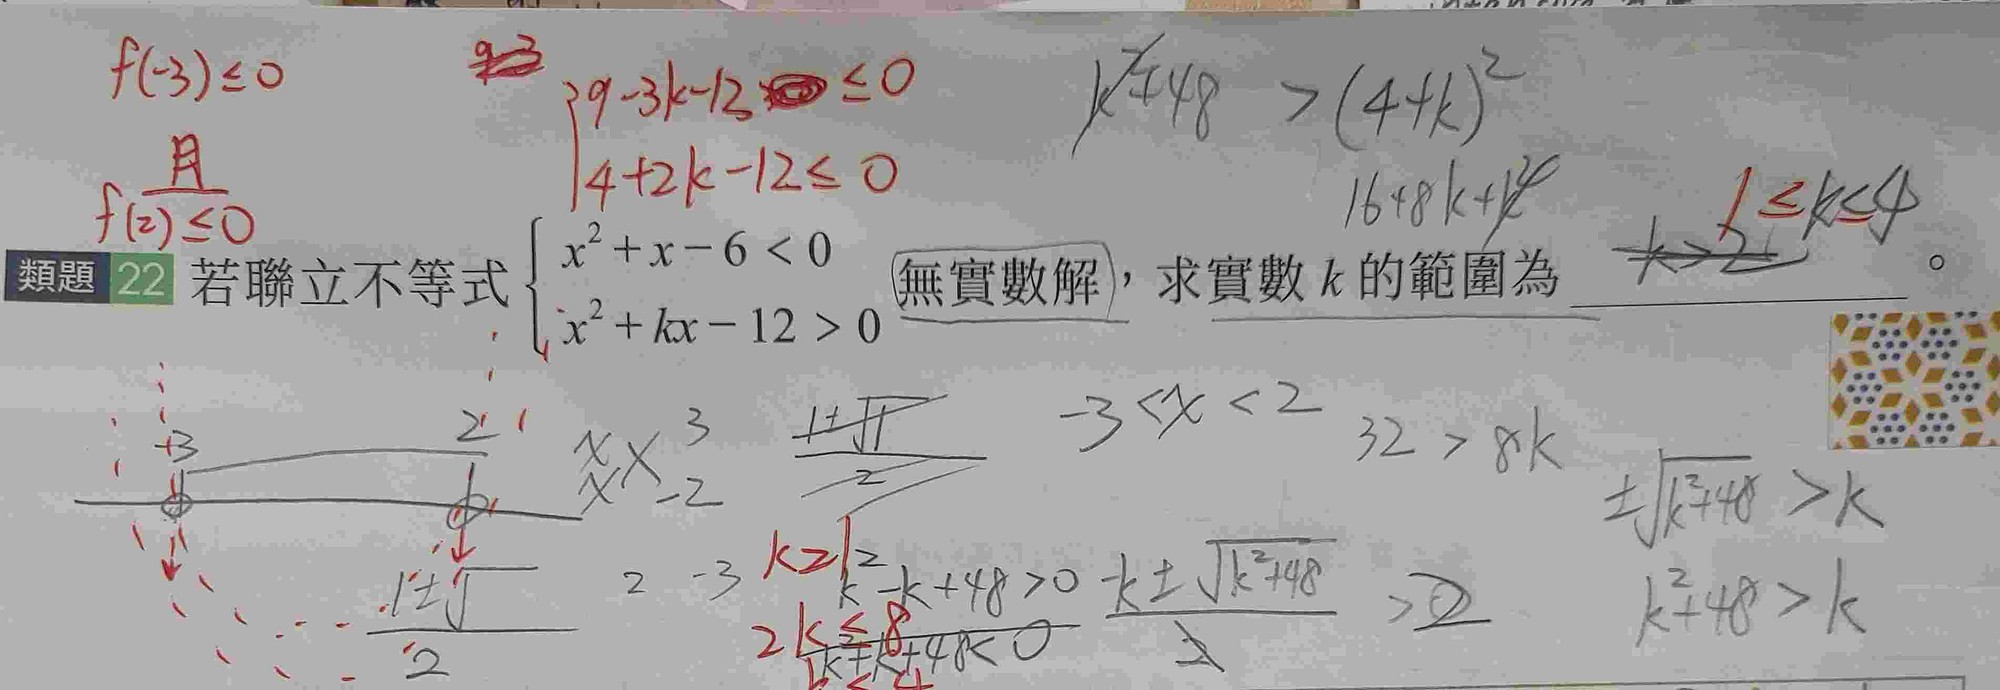 f(-3)≤0
且
f(2)≤0
9-3k-12 ≤0
4+2k-12≤0
k²+48 >(4+k)²
16+8k+k²
1≤k≤4
類題 22 若聯立不等式 { x² + x − 6 < 0
x² + kx − 12 > 0 無實數解，求實數 k 的範圍為 k>2 。
-3 2
x 3
x -2
1±√1
2
-3<x<2
32 > 8k
±√k²+48 >k
k²+48>k
1±√
2
2 -3
k≥1
k²-k+48>0
2k≤8
k²+k+48<0
k≤4
-k±√k²+48 >2
2